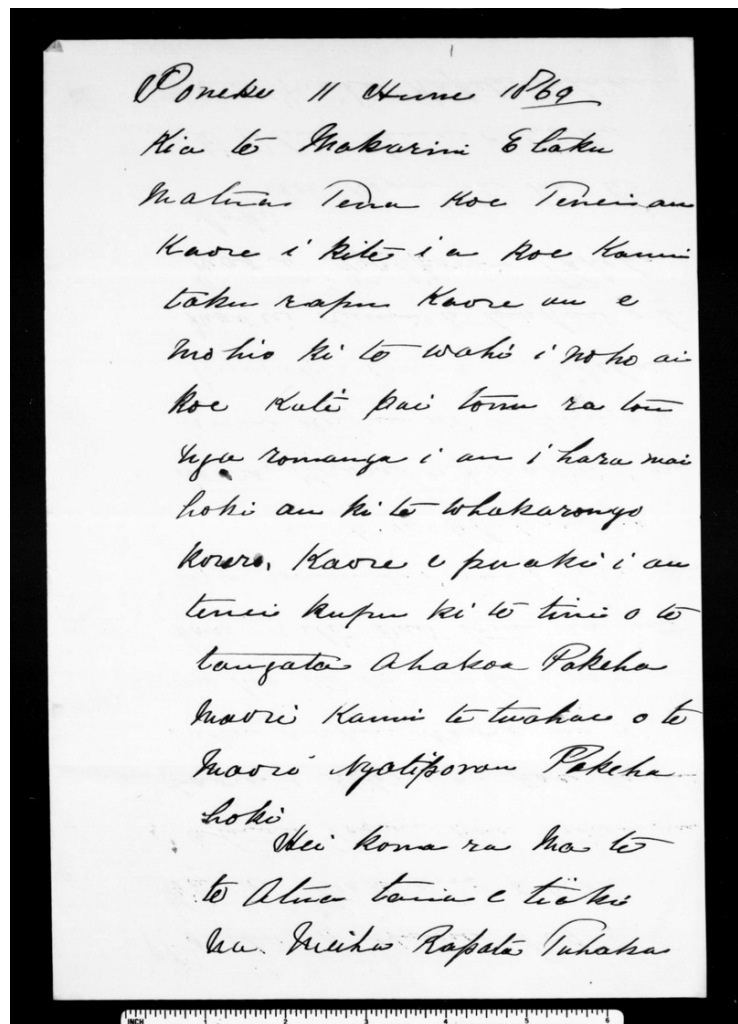 Poneke 11 Hune 1869
Kia te Makarini E taku
Matua Tena Koe Teneiau
Kaore i kite i a koe Kanui
taku rapu Kaore au e
mohio ki te wahi i noho ai
koe Kati pai tonu ra tou
nga romanga i au i hara mai
hoki au ki te whakarongo
korero, Kaore e puaki i au
tenei kupu ki te tini o te
tangata Ahakoa Pakeha
Maori Kanui te o te
Maori Ngatiporou Pakeha
hoki
Hei kona ra Ma te
te Atua taua e tiaki
Na Meiha Rapata